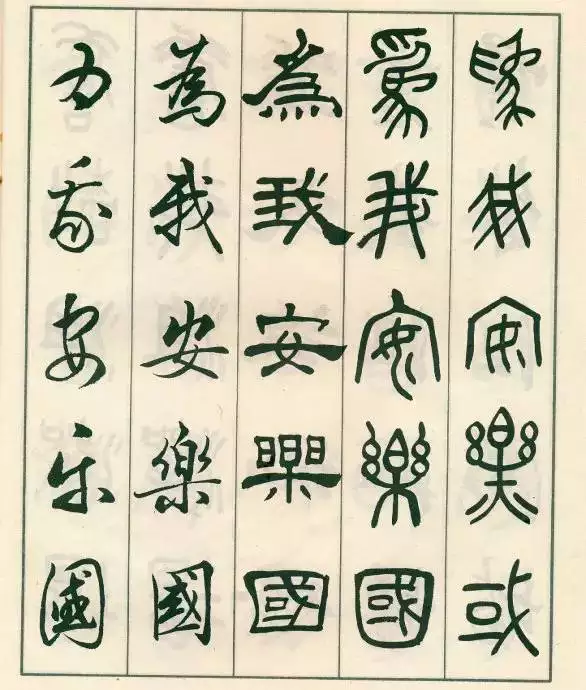 為我安樂或
為我安樂國
為我安樂國
為我安樂國
為我安樂國